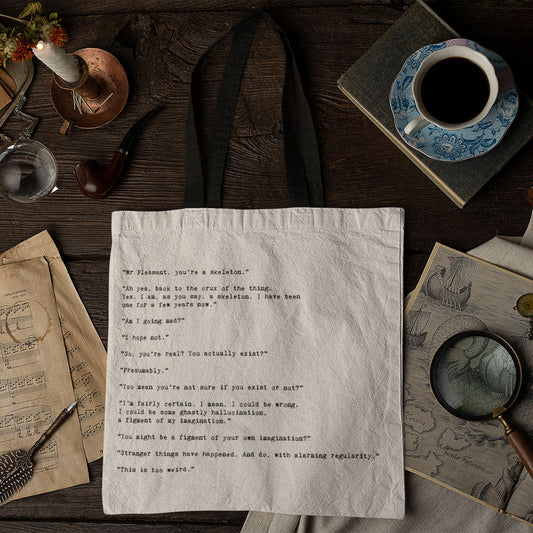 "Mr Pleasant, you're a skeleton."
"Ah yes, back to the crux of the thing.
Yes, I am, as you say, a skeleton. I have been
one for a few years now."
"Am I going mad?"
"I hope not."
"So, you're real? You actually exist?"
"Presumably."
"You mean you're not sure if you exist or not?"
"I'm fairly certain. I mean, I could be wrong.
I could be some ghastly hallucination,
a figment of my imagination."
"You might be a figment of your own imagination?"
"Stranger things have happened. And do, with alarming regularity."
"This is too weird."